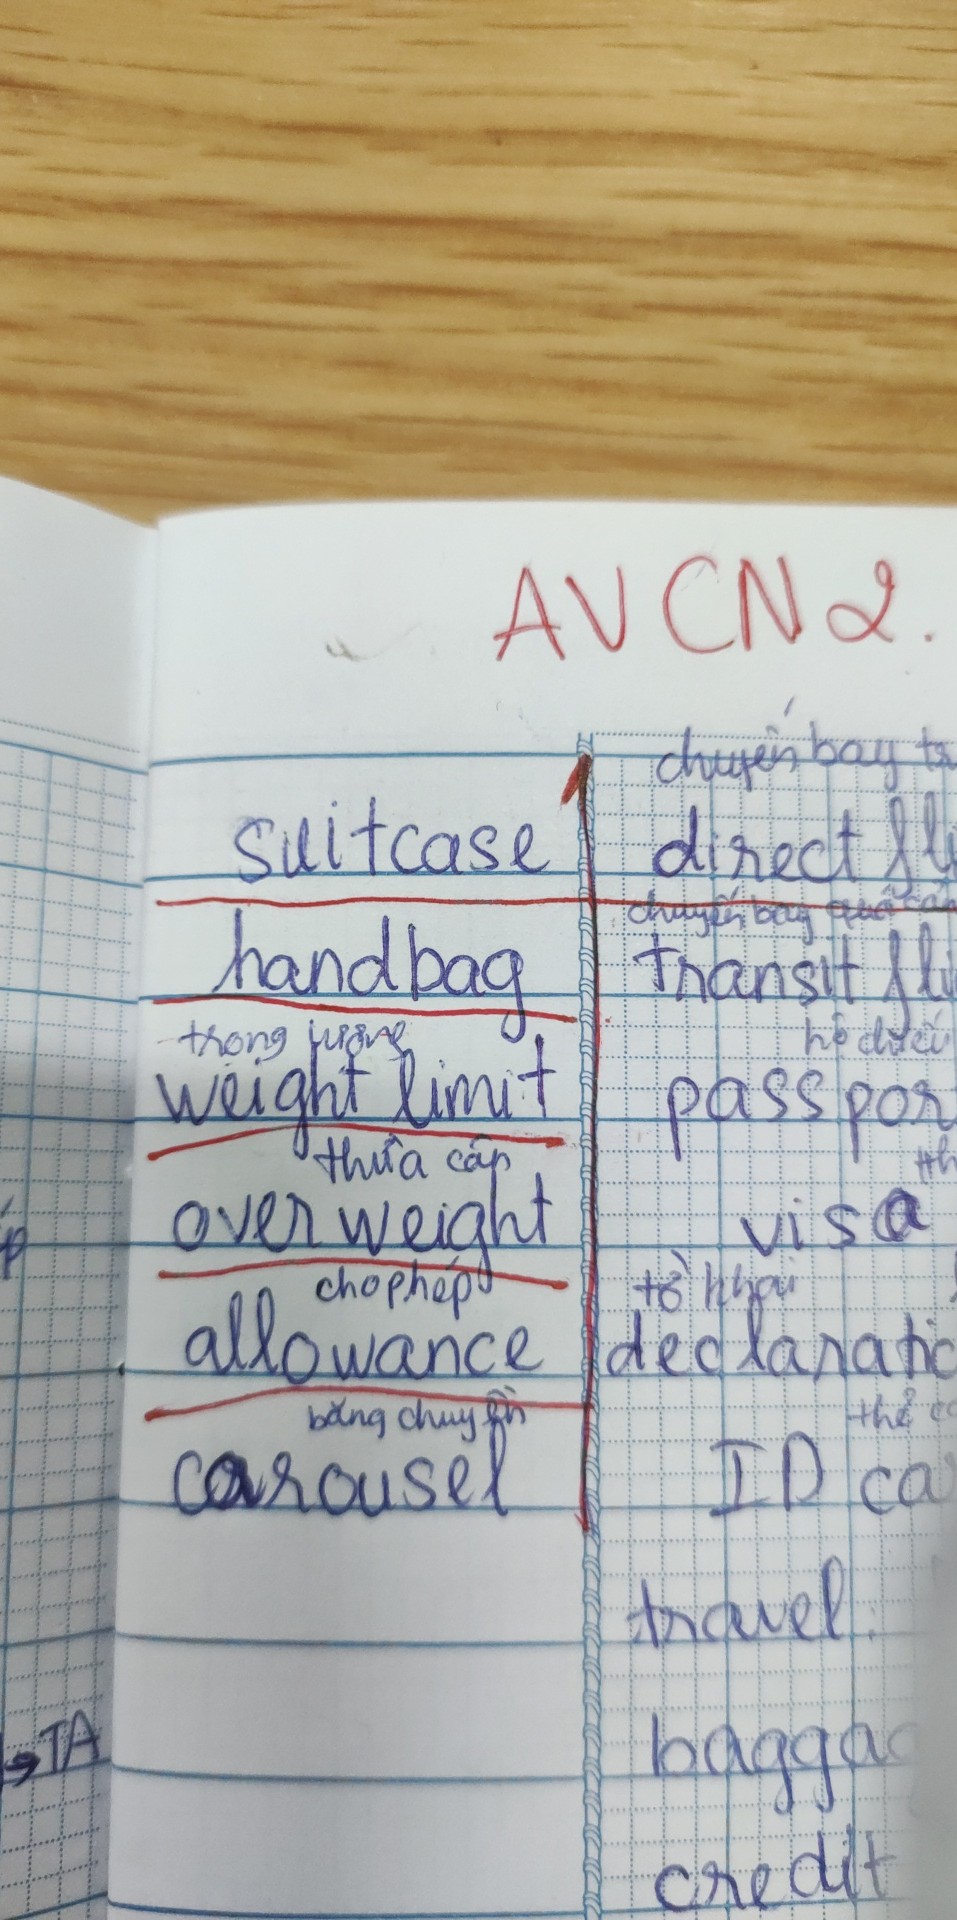 AVCN2.
suitcase
handbag
trọng lượng
weight limit
thừa cấp
overweight
cho phép
allowance
băng chuyền
carousel
chuyến bay
direct
chuyến bay quá
transit
hộ chiếu
passpor
visa
tờ khai
declaratio
thẻ
ID ca
travel:
baggag
credit
→TA